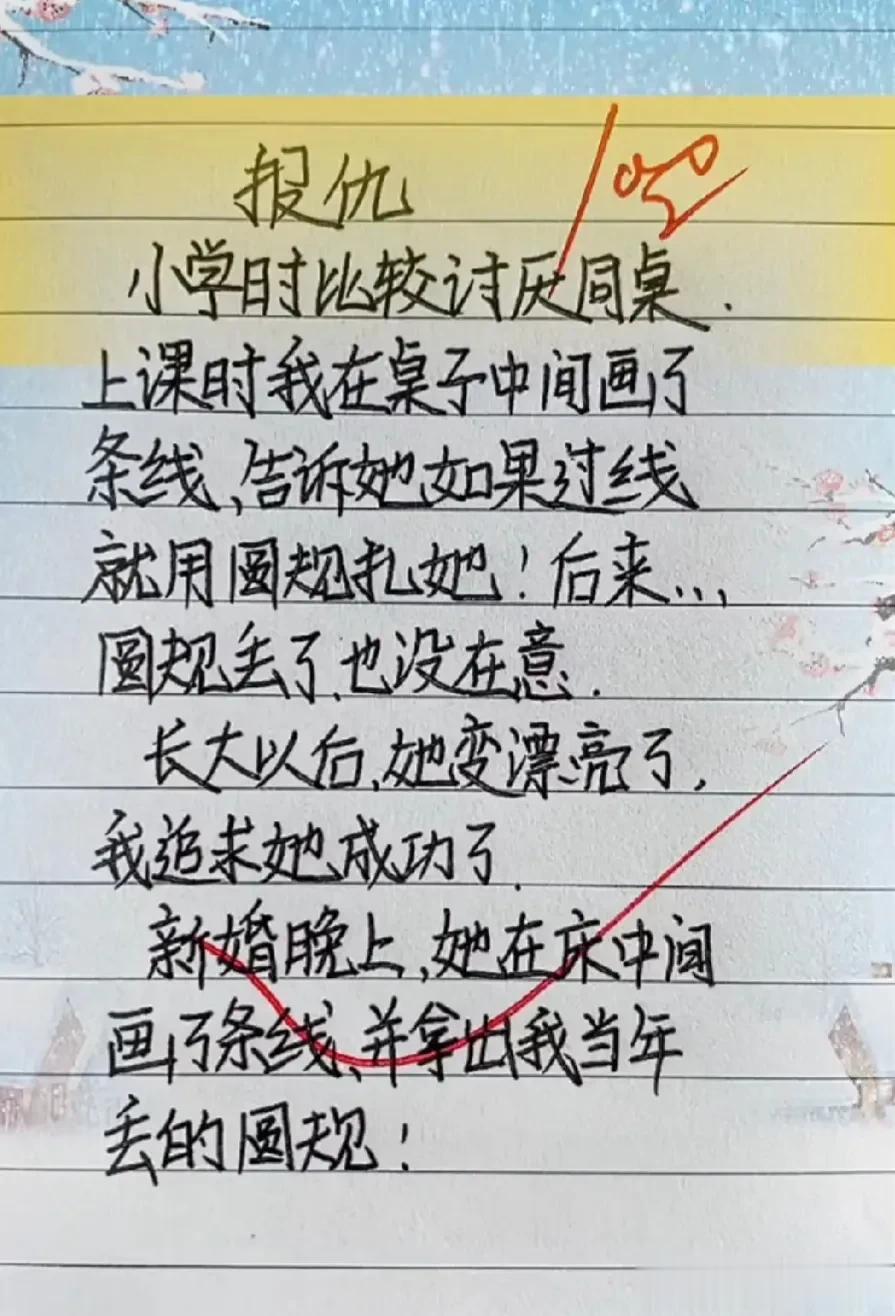 报仇
100
小学时比较讨厌同桌.
上课时我在桌子中间画了
条线,告诉她如果过线
就用圆规扎她!后来...
圆规丢了,也没在意.
长大以后,她变漂亮了,
我追求她成功了.
新婚晚上,她在床中间
画了条线,并拿出我当年
丢的圆规!